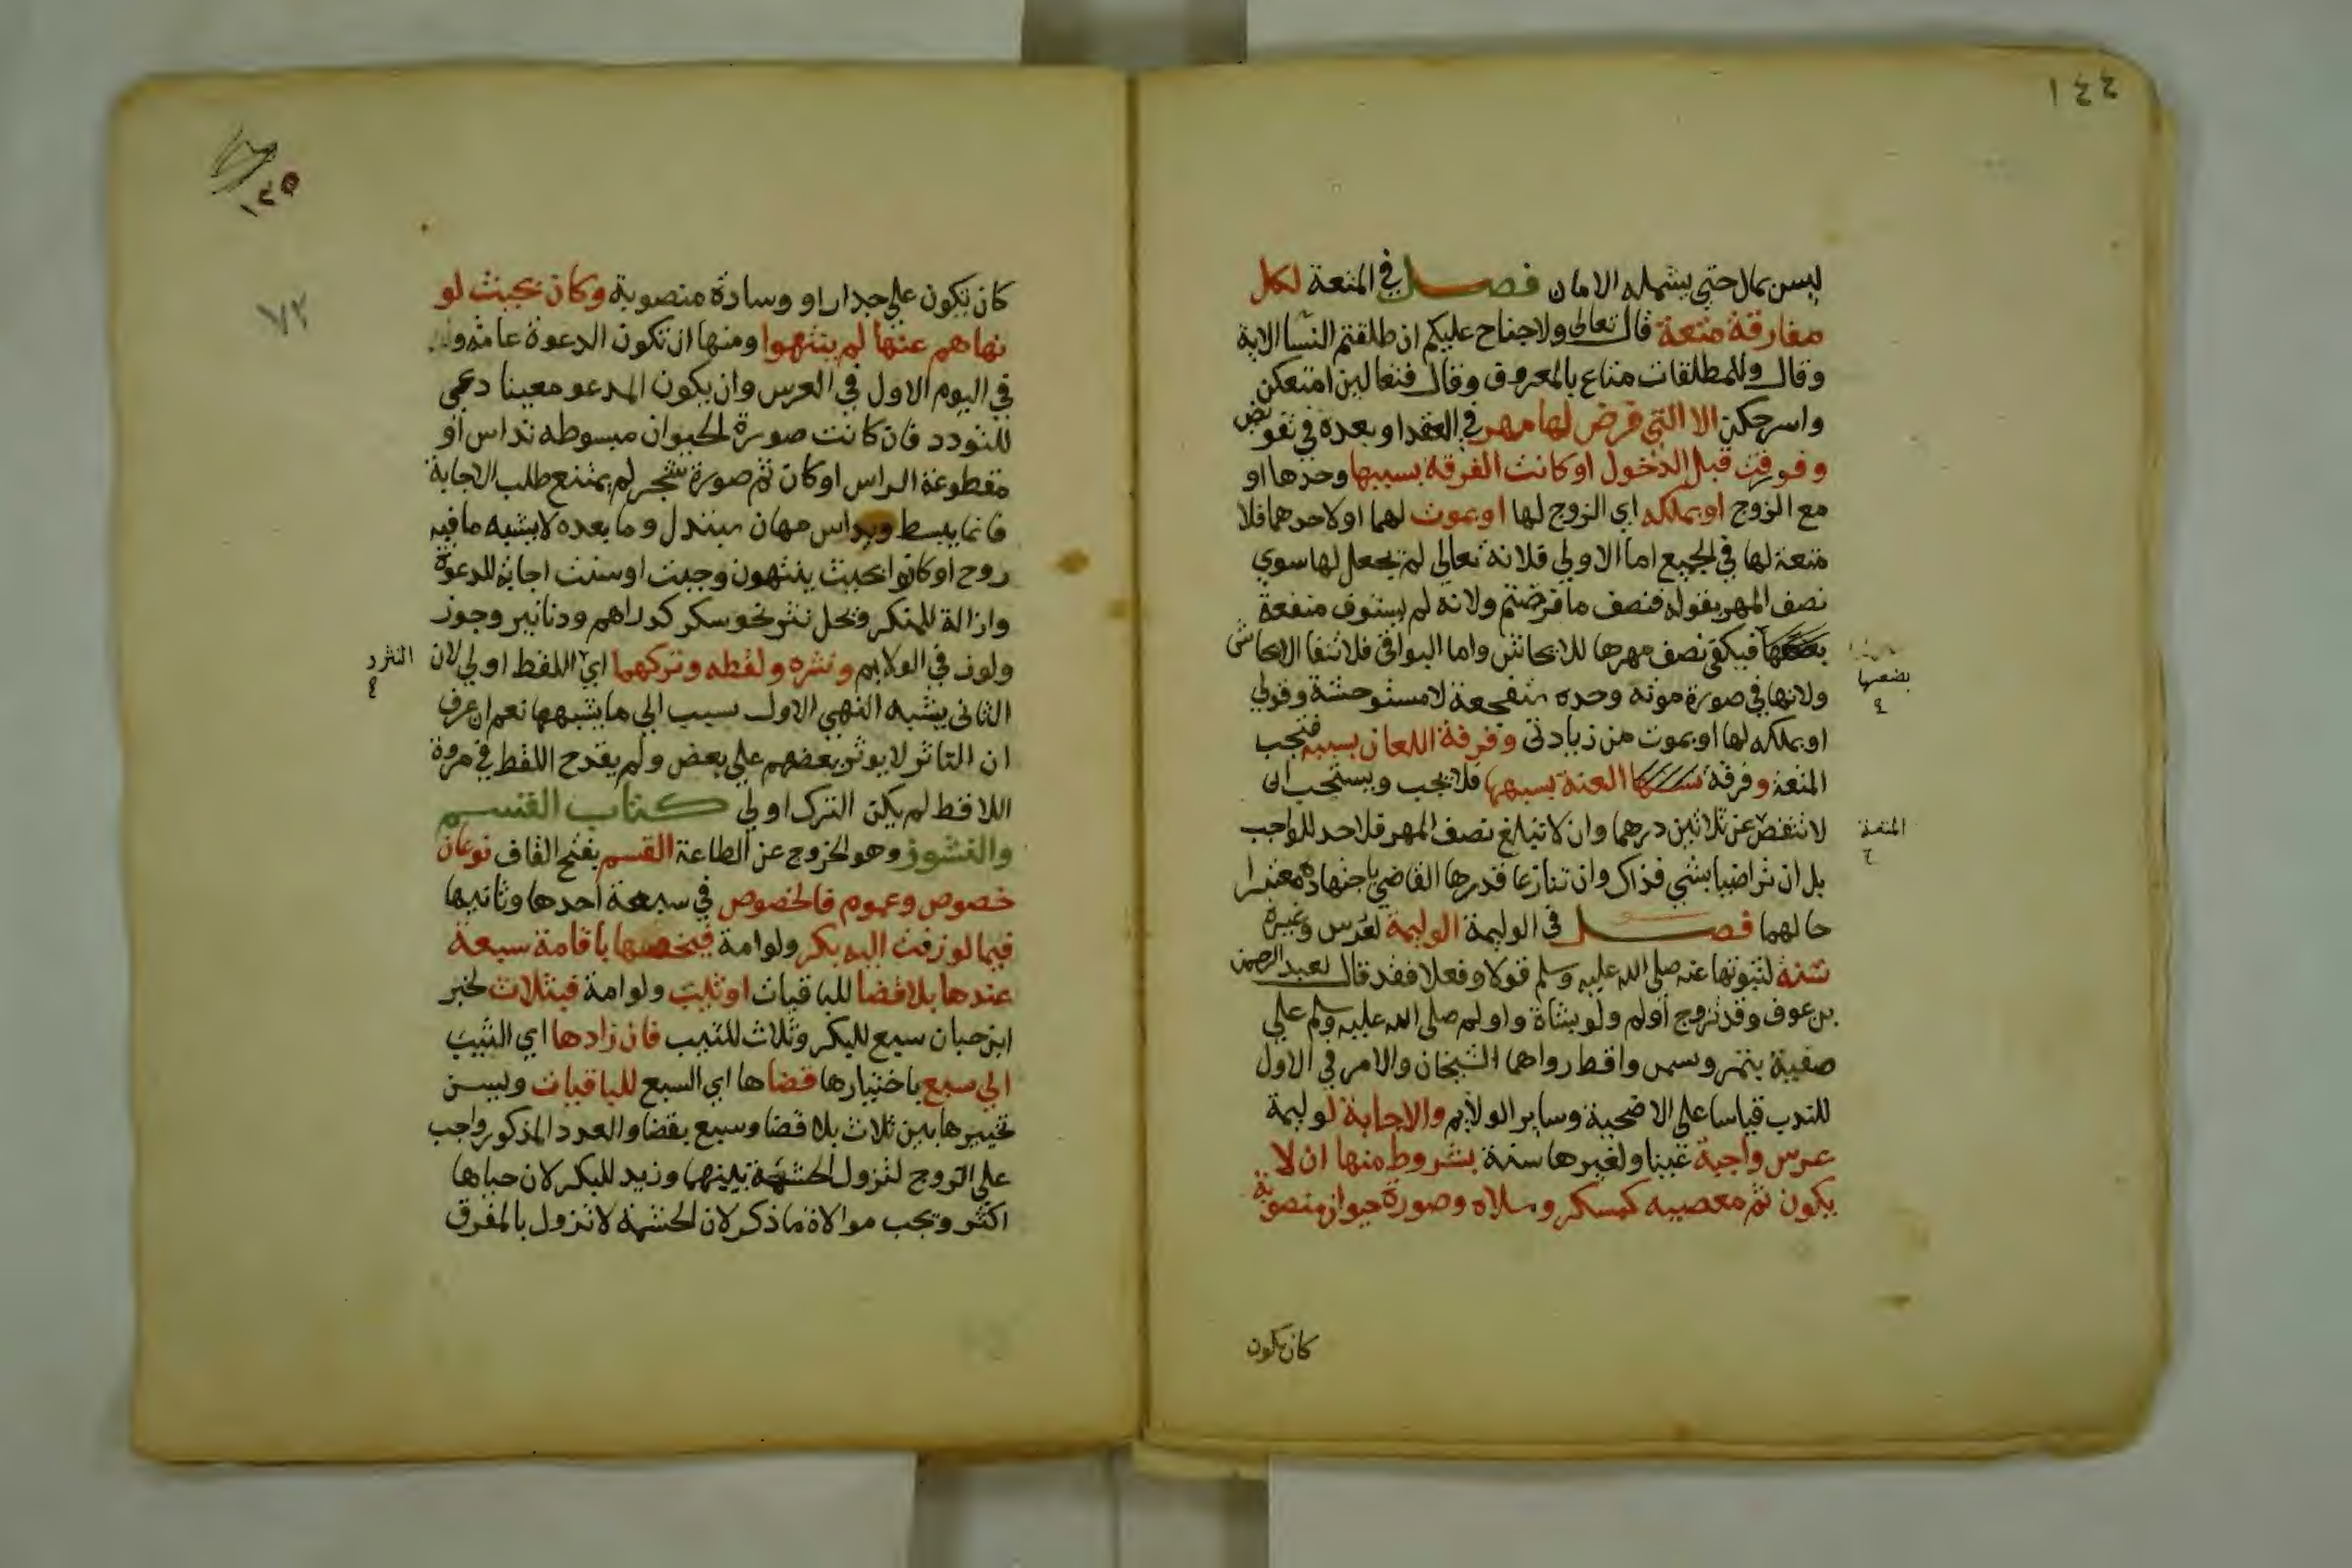 ١٤٤
ليس بمال حتى يشمله الامان فصل في المتعة لكل
مفارقة متعة قال تعالى ولا جناح عليكم ان طلقتم النسا الاية
وقال وللمطلقات متاع بالمعروف وقال فتعالين امتعكن
واسرحكن الا التي فرض لها مهر في العقد او بعده في تفويض
وفورقت قبل الدخول او كانت الفرقة بسببها وحدها او
مع الزوج او بملكه اي الزوج لها او بموت لهما او لاحدهما فلا
متعة لها في الجميع اما الاولى فلانه تعالى لم يجعل لها سوي
نصف المهر بقوله فنصف ما فرضتم ولانه لم يستوف منفعة
فيكفي نصف مهرها للايحاش واما البواقي فلانتفا الايحاش
بضعها
ولانها في صورة موته وحده متفجعة لا مستوحشة وقولي
او بملكه لها او بموت من زيادتي وفرقة اللعان بسببه فتجب
المتعة وفرقة العنة بسببها فلا يجب ويستحب ان
لا تنقص عن ثلاثين درهما وان لا تبلغ نصف المهر فلا حد للواجب
المتعة
بل ان تراضيا بشي فذاك وان تنازعا قدرها القاضي باجتهاده معتبرا
حالهما فصل في الوليمة الوليمة لعرس وغيره
سنة لثبوتها عنه صلى الله عليه وسلم قولا وفعلا فقد قال لعبد الرحمن
بن عوف وقد تزوج أولم ولو بشاة واولم صلى الله عليه وسلم علي
صفية بتمر وسمن واقط رواهما الشيخان والامر في الاول
للندب قياسا على الاضحية وساير الولايم والاجابة لوليمة
عرس واجبة عينا ولغيرها سنة بشروط منها ان لا
يكون ثم معصيه كمسكر وسلاه وصورة حيوان منصوبة
كان يكون
١٤٥
٧٣
كان يكون على جدار او وسادة منصوبة وكان بحيث لو
نهاهم عنها لم ينتهوا ومنها ان تكون الدعوة عامة
في اليوم الاول في العرس وان يكون المدعو معينا دعي
للتودد فان كانت صورة الحيوان مبسوطه تداس او
مقطوعة الراس او كان ثم صورة شجر لم يمتنع طلب الاجابة
فانما يبسط ويداس مهان مبتذل وما بعده لا يشبه ما فيه
روح او كانوا بحيث ينتهون وجبت او سنت اجابة للدعوة
وازالة للمنكر وتحل نثر نحو سكر كدراهم ودنانير وجوز
ولوز في الولايم ونثره ولقطه وتركهما اي اللقط اولي لان
النثر و
الثاني يشبه النهي الاول سبب الي ما يشبهها نعم ان عرف
ان الناثر لا يوثر بعضهم على بعض ولم يقدح اللقط في مروة
اللاقط لم يكن الترك اولي كتاب القسم
والنشوز وهو الخروج عن الطاعة القسم بفتح القاف نوعان
خصوص وعموم فالخصوص في سبعة أحدها وثانيها
فيما لو زفت اليه بكر ولو امة فيخصها باقامة سبعة
عندها بلا قضا للباقيات او ثيب ولو امة فبثلاث لخبر
ابن حبان سبع للبكر وثلاث للثيب فان زادها اي الثيب
الي سبع باختيارها قضاها اي السبع للباقيات ويسن
تخييرها بين ثلاث بلا قضا وسبع بقضا والعدد المذكور واجب
على الزوج لتزول الحشمة بينهما وزيد للبكر لان حياها
اكثر وتجب موالاة ما ذكر لان الحشمة لا تزول بالمفرق